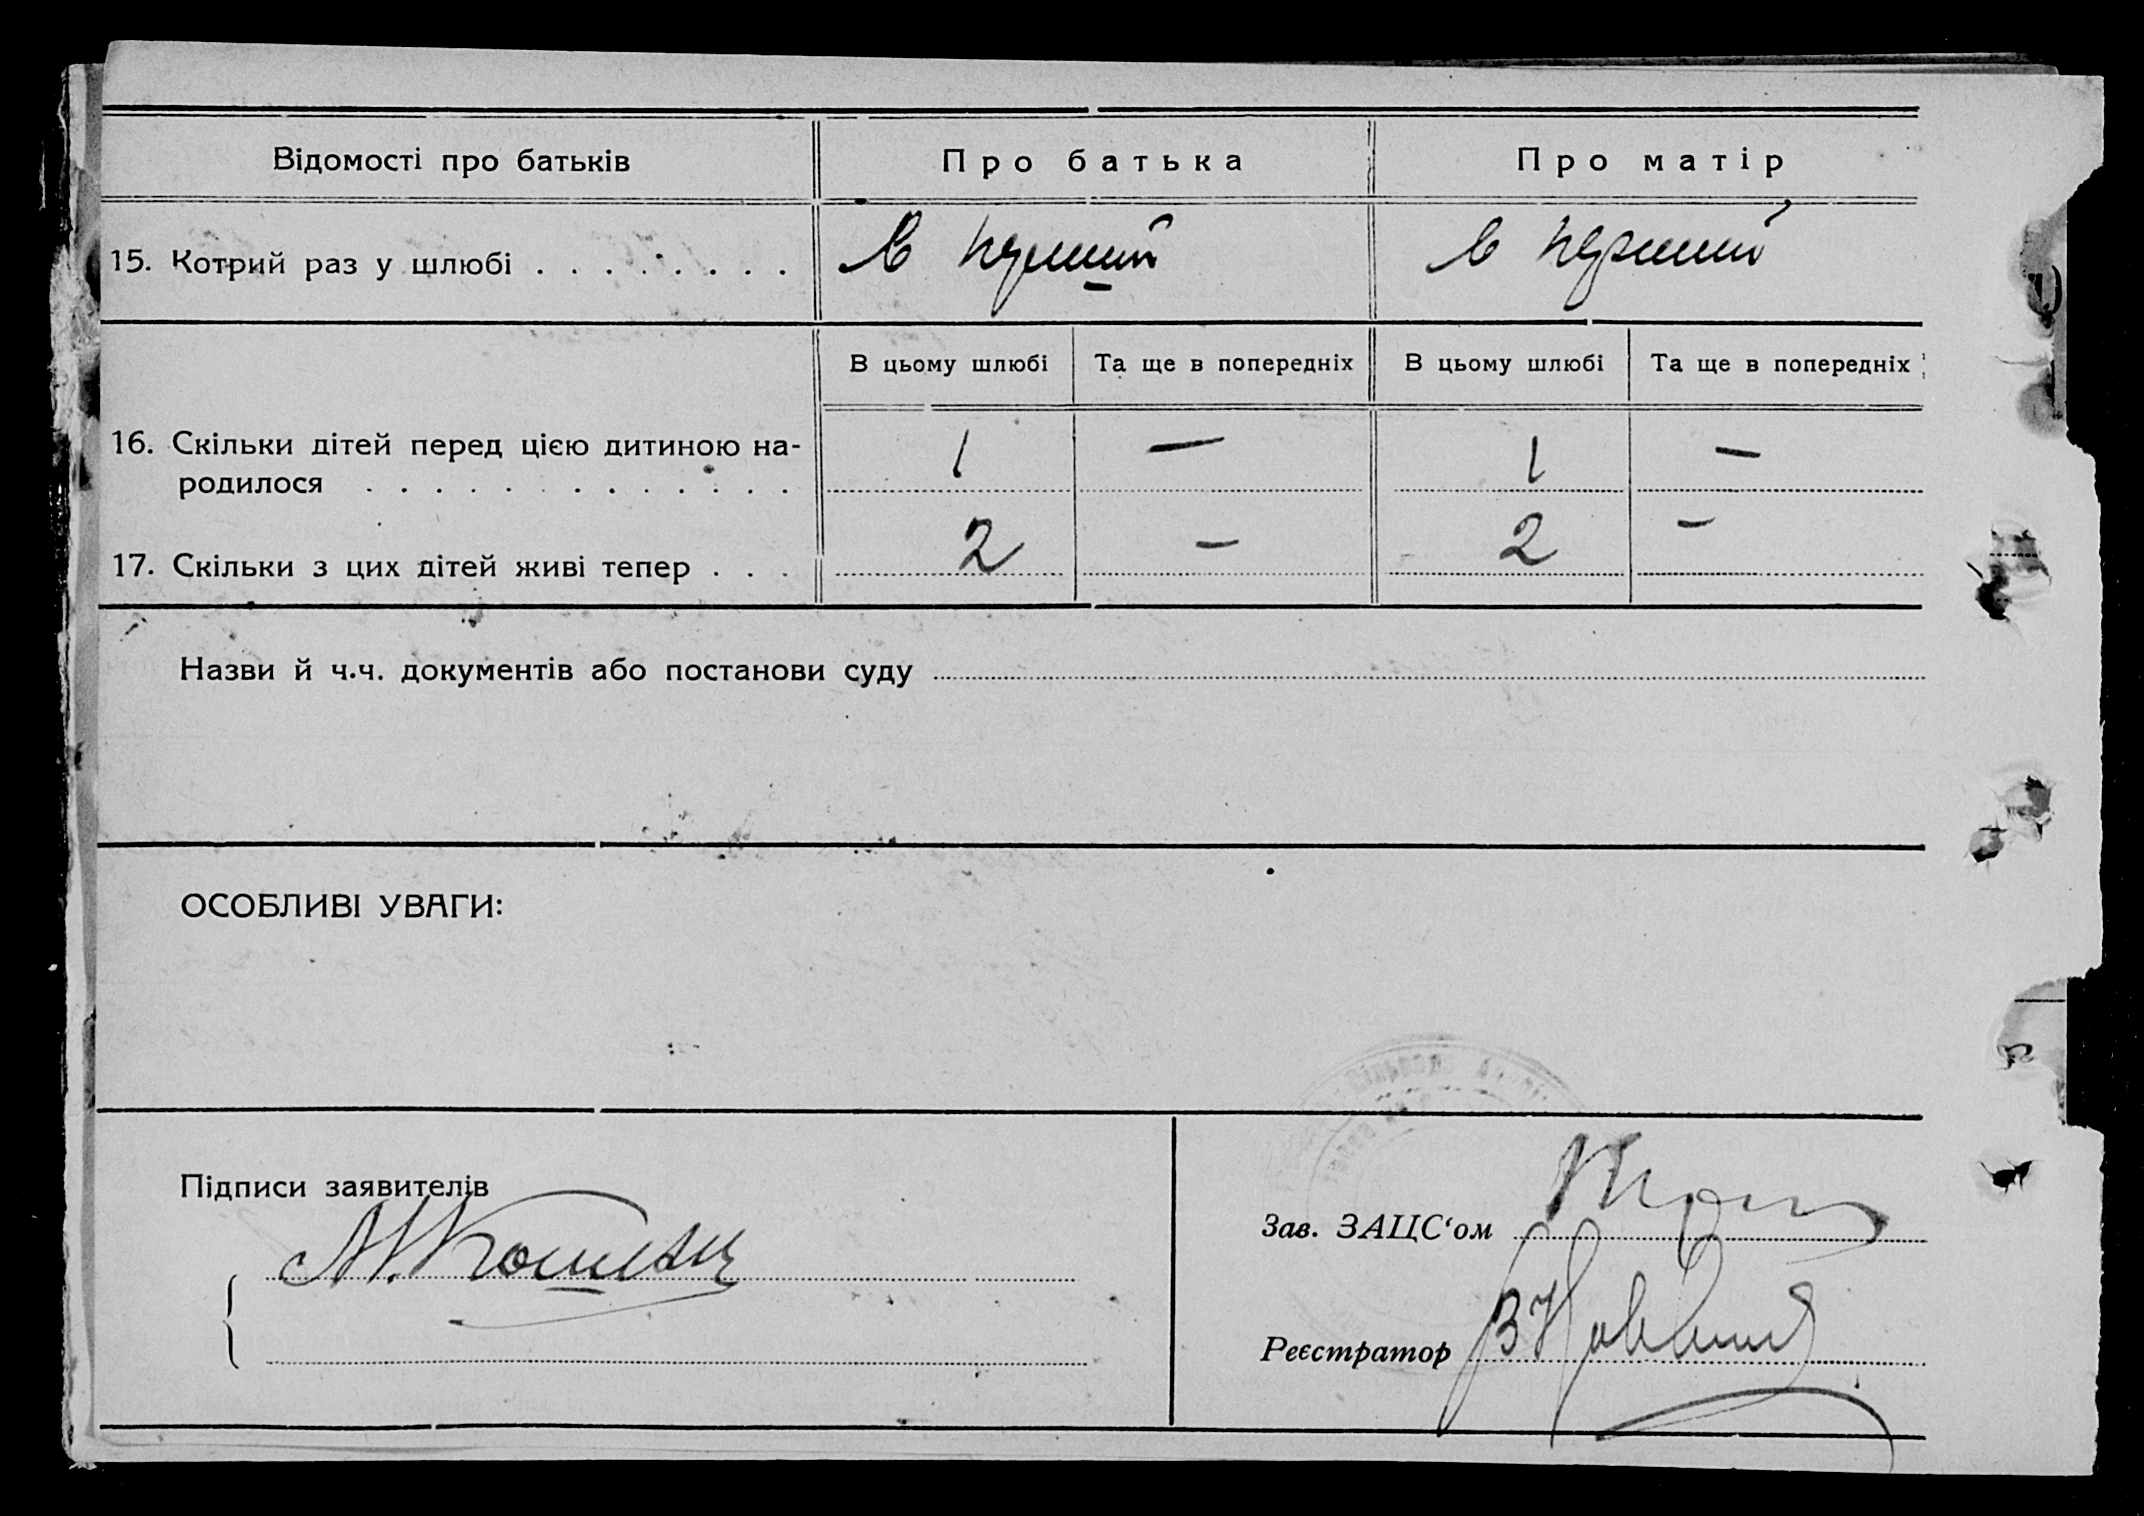 Відомості про батьків
Про батька
Про матір
15. Котрий раз у шлюбі . . . . . . . .
в перший
в перший
В цьому шлюбі
Та ще в попередніх
В цьому шлюбі
Та ще в попередніх
16. Скільки дітей перед цією дитиною на-
родилося . . . . . . . . . . . . .
1
—
1
—
17. Скільки з цих дітей живі тепер . . .
2
—
2
—
Назви й ч.ч. документів або постанови суду
ОСОБЛИВІ УВАГИ:
Підписи заявителів
Зав. ЗАЦС‘ом
Реєстратор